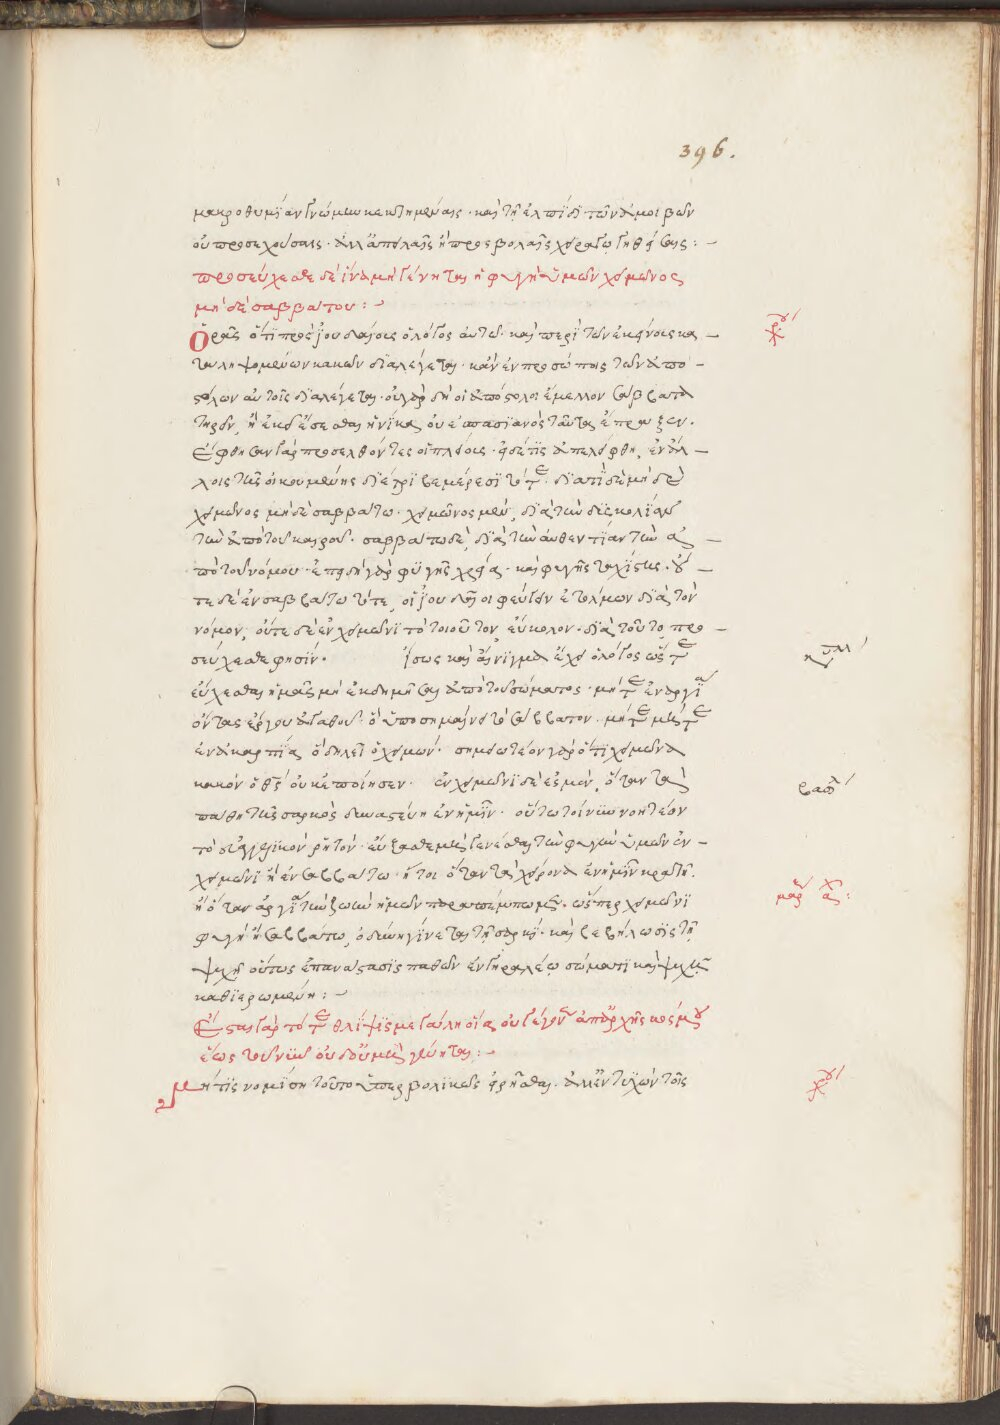 396.
μακροθυμίαν γνώμην κεκτημέναις · καὶ τῇ ἐλπίδι τῶν ἀμοιβῶν
οὐ προσεχούσαις · ἀλλ' ἁπαλαῖς
προσεύχεσθε δὲ ἵνα μὴ γένηται ἡ φυγὴ ὑμῶν χειμῶνος
μηδὲ σαββάτου :
Ὁρᾶς ὅτι πρὸς ἰουδαίους ὁ λόγος αὐτῶ · καὶ περὶ τῶν ἐκείνους κα
ταληψομένων κακῶν διαλέγεται · κἂν ἐν προσώποις τῶν ἀπο
στόλων αὐτοῖς διαλέγεται · οὐ γὰρ δὴ οἱ ἀπόστολοι ἔμελλον σάββατα
τηρεῖν, ἢ ἐκεῖ ἔσεσθαι ἡνίκα οὐεσπασιανὸς ταῦτα ἔπραξεν.
Ἔφθησαν γὰρ προσελθόντες οἱ πλείους · εἰ δέ τις ἀπελείφθη, ἐν ἄλ
λοις τῆς οἰκουμένης διέτριβε μέρεσι τότε · διατί δὲ μηδὲ
χειμῶνος μηδὲ σαββάτω · χειμῶνος μέν, διὰ τὴν δυσκολίαν
τὴν ἀπὸ τοῦ καιροῦ · σαββάτω δὲ, διὰ τὴν αὐθεντίαν τὴν ἀ
πὸ τοῦ νόμου · ἐπειδὴ γὰρ φυγῆς χρεία · καὶ φυγῆς ταχίστης · οὔ
τε δὲ ἐν σαββάτω τότε, οἱ ἰουδαῖοι φεύγειν ἐτόλμων διὰ τὸν
νόμον, οὔτε δὲ ἐν χειμῶνι τὸ τοιοῦτον, εὔκολον · διὰ τοῦτο, προ
σεύχεσθε φησίν · ἴσως καὶ αἴνιγμα ἔχει ὁ λόγος ὥστε
εὔχεσθαι ἡμᾶς μὴ ἐκδημῆσαι ἀπὸ τοῦ σώματος · μήτε ἐν ἀργία
ὄντας ἔργου ἀγαθοῦ · ὃ ὑποσημαίνει τὸ σάββατον · μήτε μὴν
ἐν ἀκαρπία ὃ δηλεῖ ὁ χειμών · σημειωτέον γὰρ ὅτι χειμῶνα
κακὸν ὁ θς οὐκ ἐποίησεν · ἐν χειμῶνι δὲ ἐσμὲν, ὅταν τὰ
πάθη τῆς σαρκὸς δυναστεύη ἐν ἡμῖν · οὕτω τοίνυν νοητέον
τὸ εὐαγγελικὸν ῥητόν · εὔξασθε μὴ γενέσθαι τὴν φυγὴν ὑμῶν ἐν
χειμῶνι ἢ ἐν σαββάτω · ἤτοι ὅταν τὰ χείρονα ἐν ἡμῖν κρατῆ.
ἢ ὅταν ἀργία τὴν ζωὴν ἡμῶν παραπέμπωμεν · ὥσπερ χειμῶνι
φυγὴ ἢ σαββάτω, ὀδύνη γίνεται τῆ σαρκὶ · καὶ βεβήλωσις τῆ
ψυχῆ οὕτως ἐπανάστασις παθῶν ἐν γηραλέω σώματι καὶ ψυχῆ
καθιερωμένη :
Ἔσται γὰρ τότε θλίψις μεγάλη οἵα οὐ γέγονεν ἀπ' ἀρχῆς κόσμου
ἕως τοῦ νῦν οὐδ' οὐ μὴ γένηται :
Μή τις νομίση τοῦτο ὑπερβολικῶς εἰρῆσθαι · ἀλλ' ἐντυχὼν τοῖς